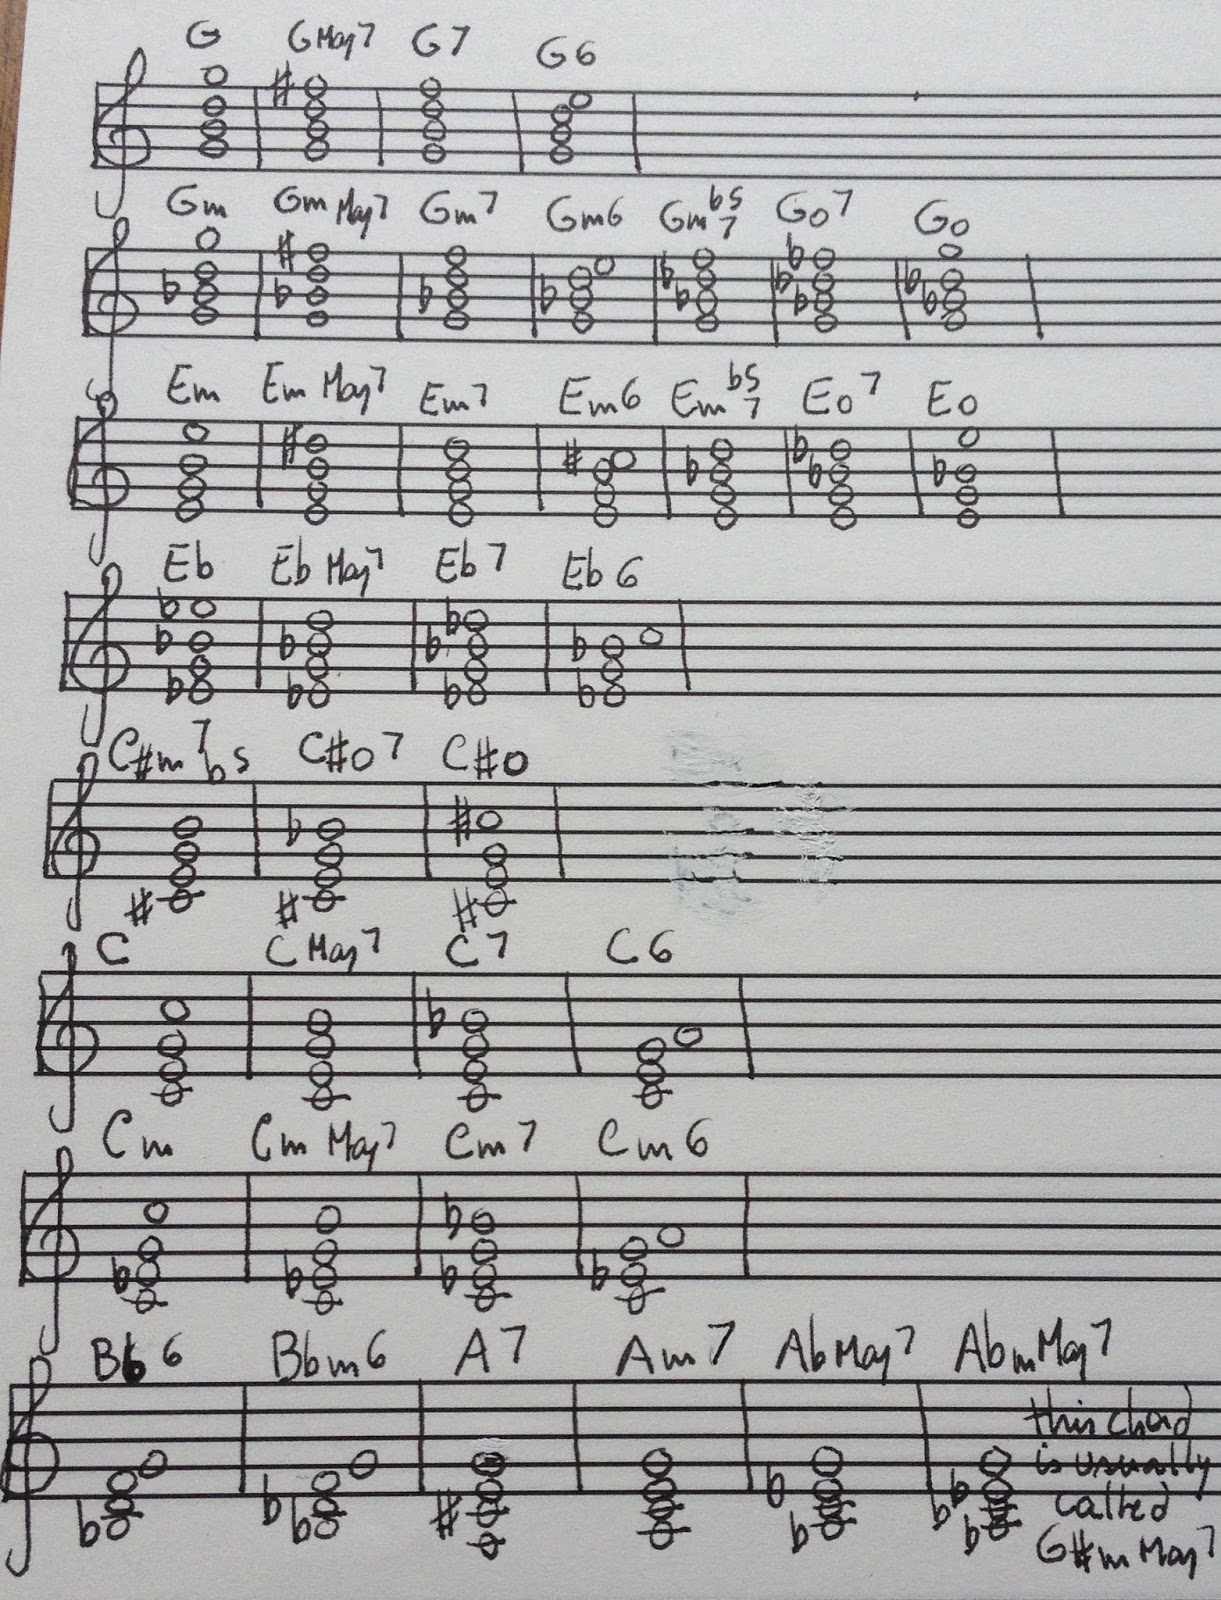 G GMaj7 G7 G6
Gm Gm Maj7 Gm7 Gm6 Gm7b5 Go7 Go
Em Em Maj7 Em7 Em6 Em7b5 Eo7 Eo
Eb Eb Maj7 Eb7 Eb6
C#m7b5 C#o7 C#o
C C Maj7 C7 C6
Cm Cm Maj7 Cm7 Cm6
Bb6 Bbm6 A7 Am7 AbMaj7 AbmMaj7
this chord
is usually
called
G#m Maj7